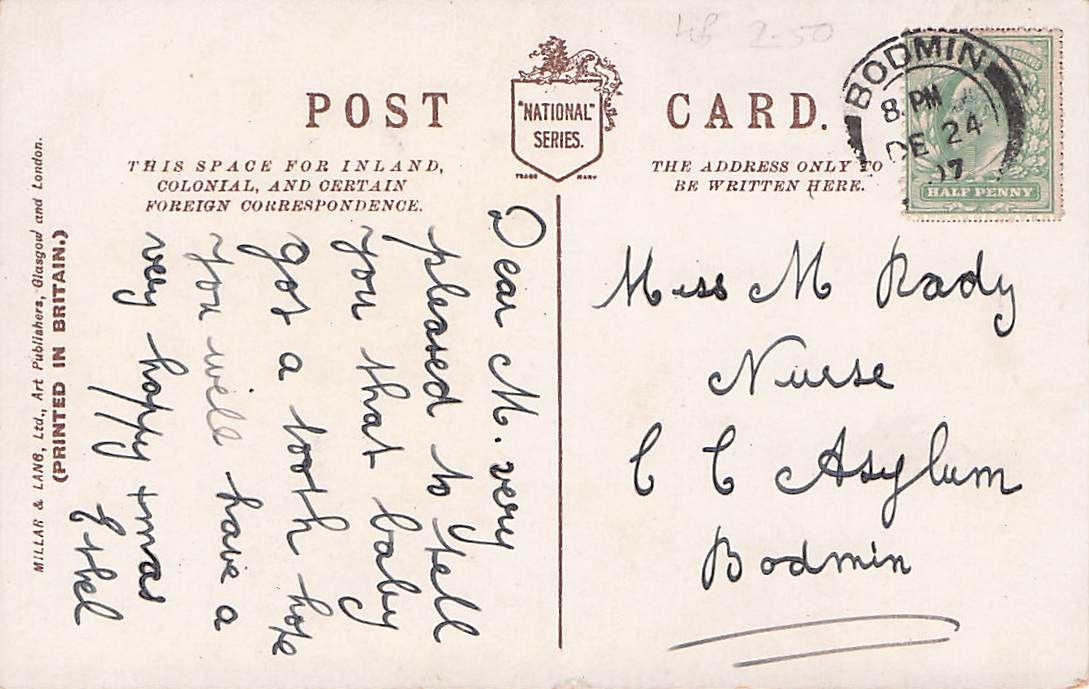 HB 2-50
POST CARD.
"NATIONAL"
SERIES.
TRADE MARK
THIS SPACE FOR INLAND,
COLONIAL, AND CERTAIN
FOREIGN CORRESPONDENCE.
THE ADDRESS ONLY TO
BE WRITTEN HERE.
BODMIN
8. PM
DE 24
07
HALF PENNY
MILLAR & LANG, Ltd., Art Publishers, Glasgow and London.
(PRINTED IN BRITAIN.)
Dear M. very
pleased to tell
you that baby
got a tooth hope
you will have a
very happy Xmas
Ethel
Miss M Rady
Nurse
C C Asylum
Bodmin